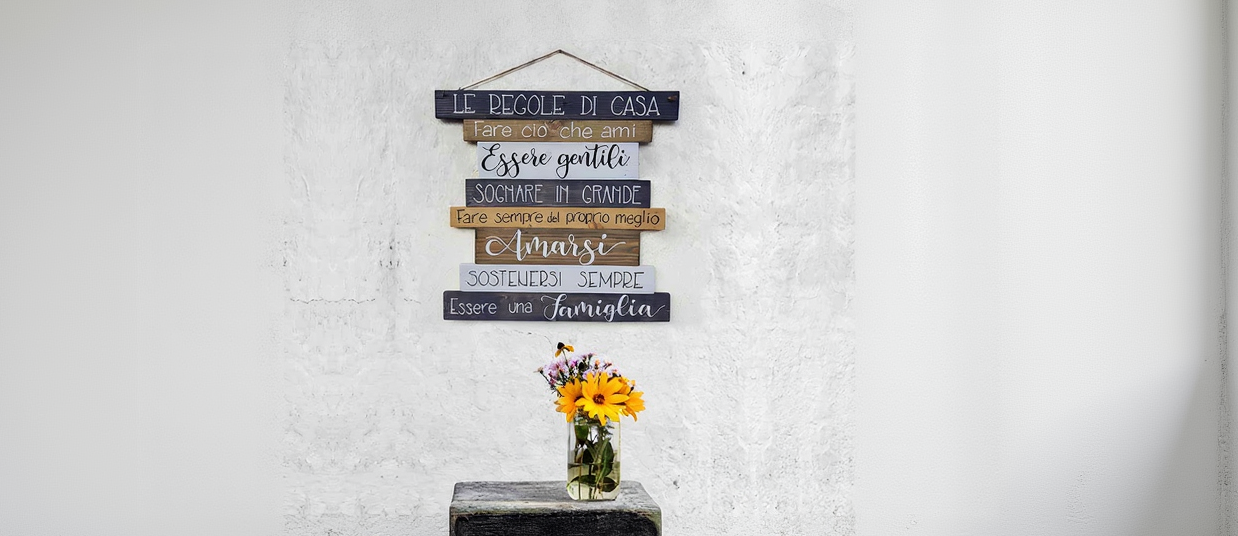 LE REGOLE DI CASA
Fare ciò che ami
Essere gentili
SOGNARE IN GRANDE
Fare sempre del proprio meglio
Amarsi
SOSTENERSI SEMPRE
Essere una Famiglia